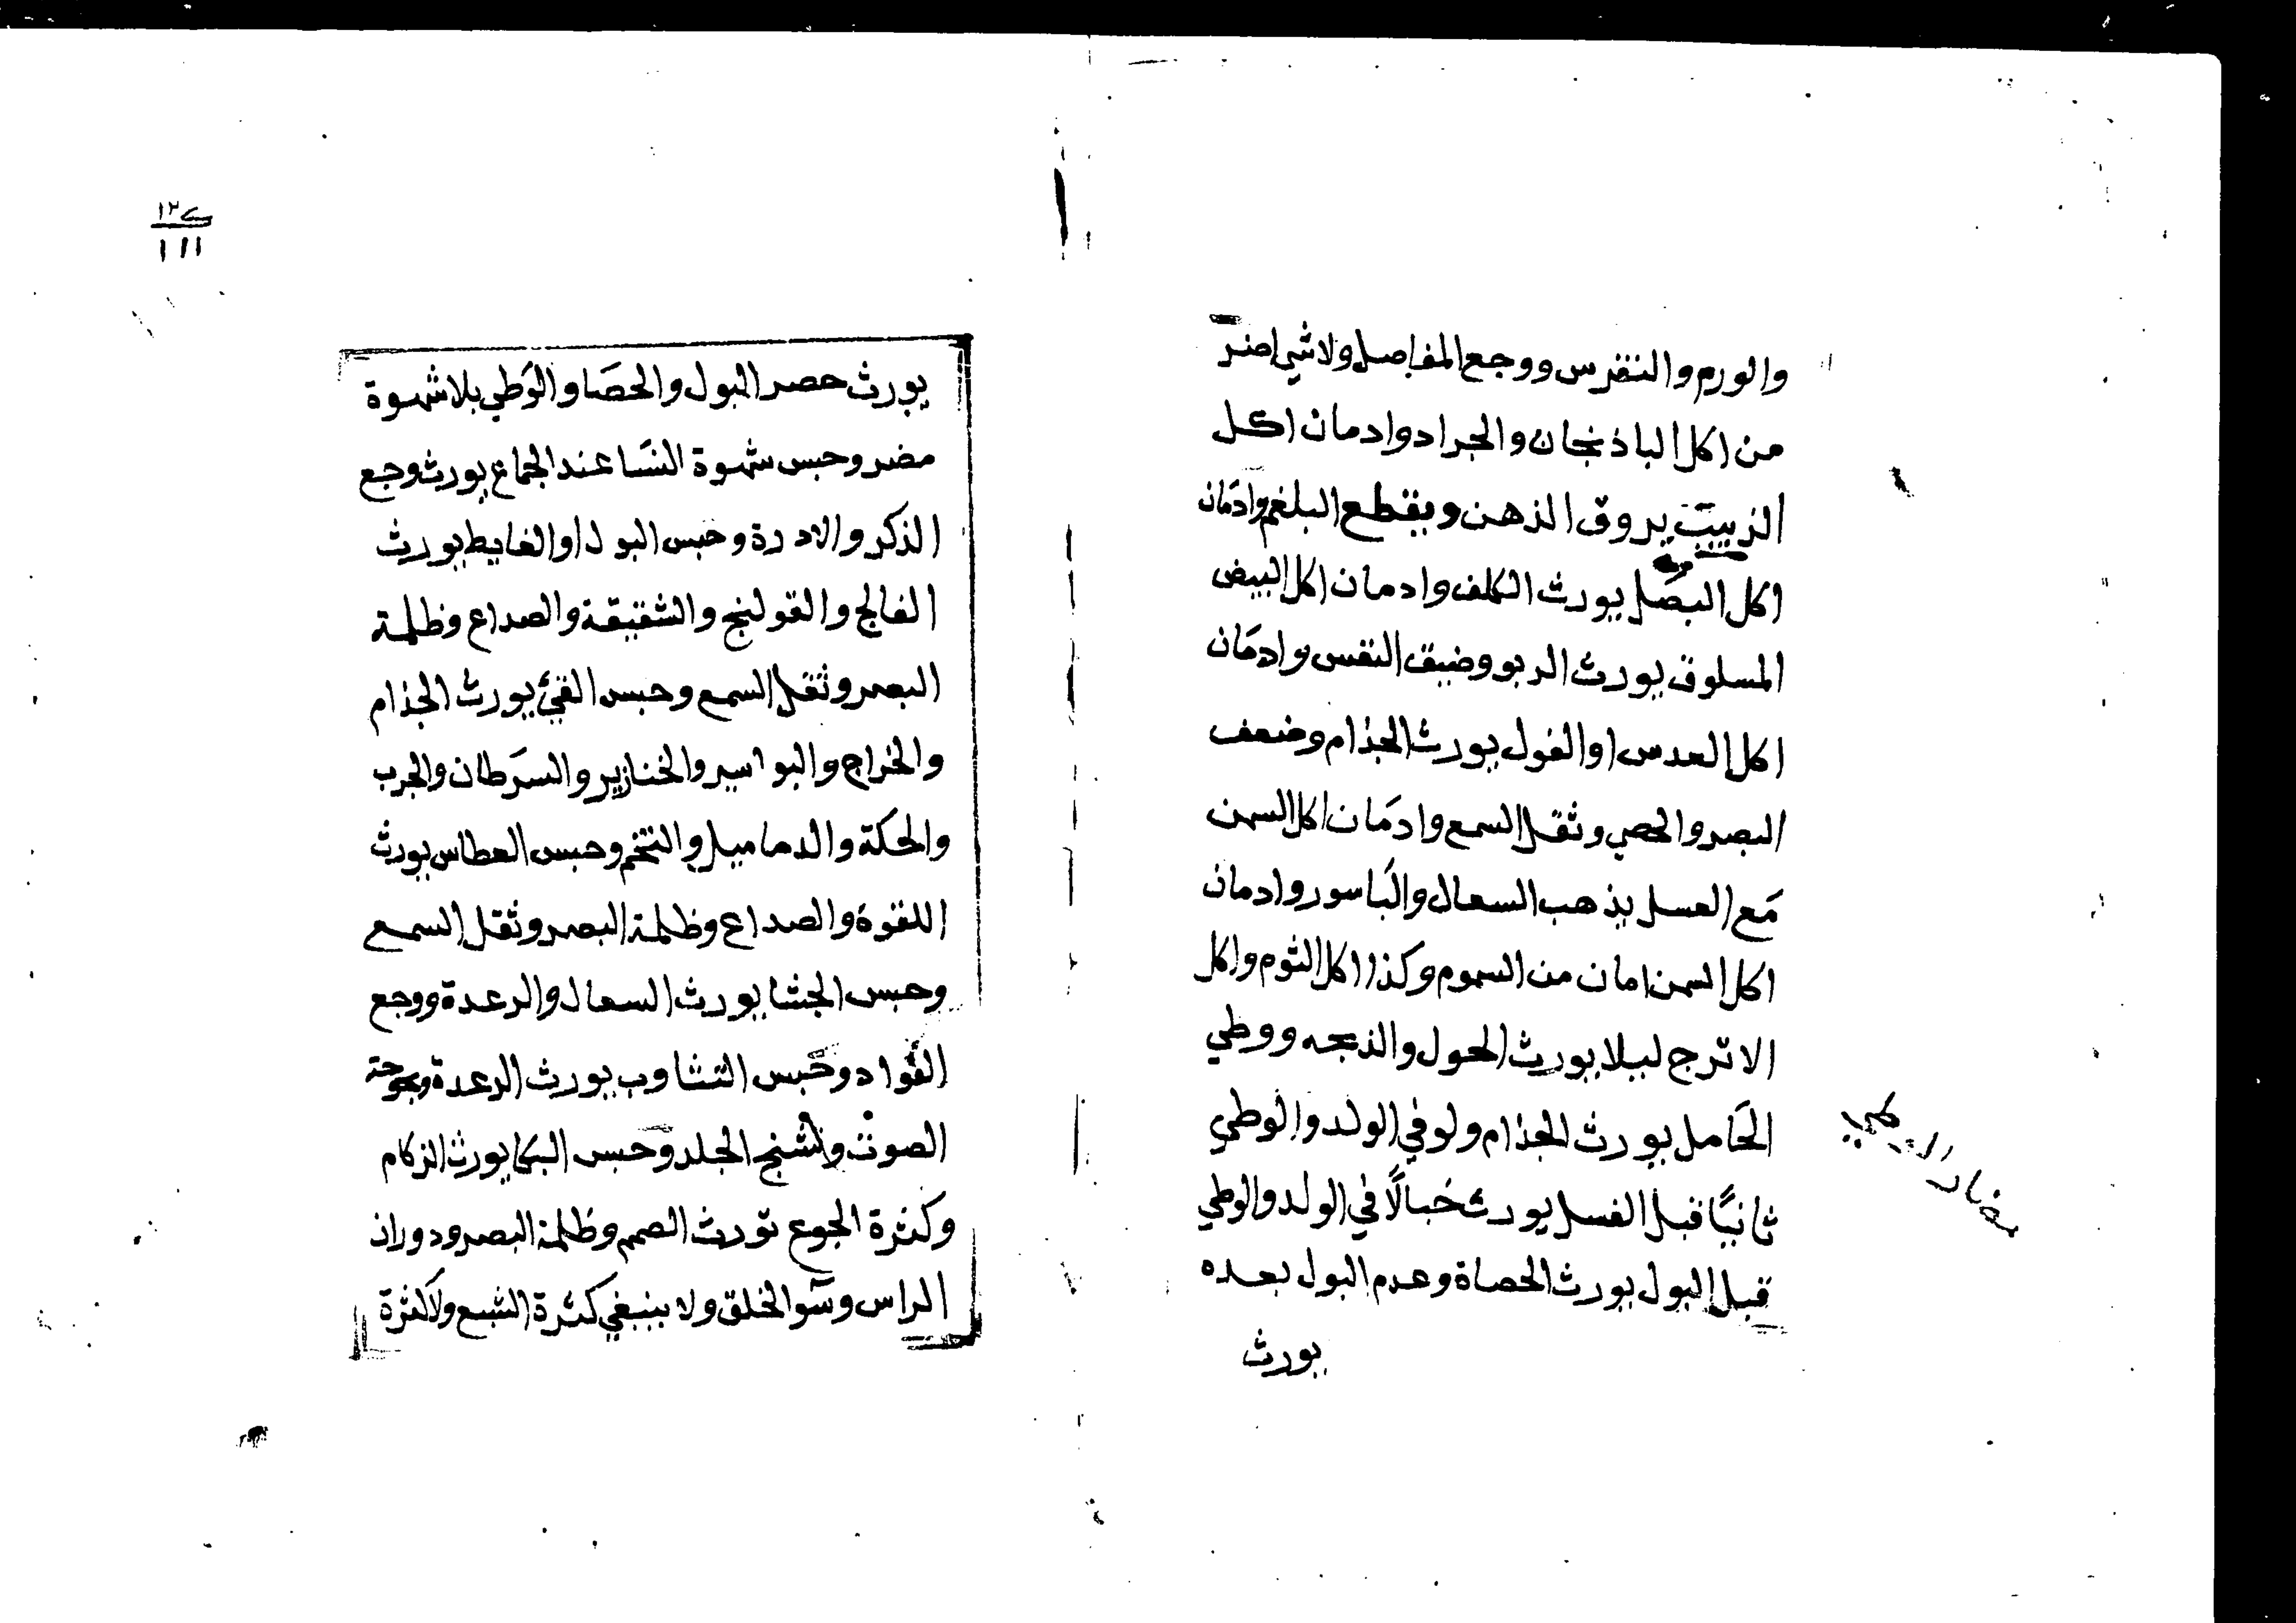 والورم والنقرس ووجع المفاصل ولا شي اضر
من اكل الباذنجان والجراد وادمان اكل
الزبيب يروق الذهن ويقطع البلغم وادمان
اكل البصل يورث الكلف وادمان اكل البيض
المسلوق يورث الربو وضيق النفس وادمان
اكل العدس او الفول يورث الجذام وضعف
البصر والحصي وثقل السمع وادمان اكل السمن
مع العسل يذهب السعال والباسور وادمان
اكل السمن امان من السموم وكذا اكل الثوم واكل
الاترج ليلا يورث الحول والذبحه ووطي
الحامل يورث الجذام ولو في الولد والوطي
ثانيًا قبل الغسل يورث خبالًا في الولد والوطي
قبل البول يورث الحصاة وعدم البول بعده
يورث
١١١
يورث حصر البول والحصا والوطي بلا شهوة
مضر وحبس شهوة النسا عند الجماع يورث وجع
الذكر والادرة وحبس البول او الغايط يورث
الفالج والقولنج والشقيقة والصداع وظلمة
البصر وثقل السمع وحبس القئ يورث الجذام
والخراج والبواسير والخنازير والسرطان والجرب
والحكة والدماميل والتخم وحبس العطاس يورث
اللقوة والصداع وظلمة البصر وثقل السمع
وحبس الجشا يورث السعال والرعدة ووجع
الفواد وحبس التثاوب يورث الرعدة وبحوحة
الصوت وتشنج الجلد وحبس البكا يورث الزكام
وكثرة الجوع تورث الصمم وظلمة البصر ودوران
الراس وسو الخلق ولا ينبغي كثرة الشبع ولا كثرة